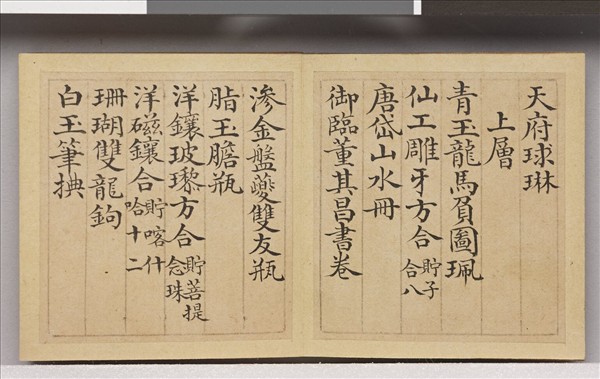 天府球琳
上層
青玉龍馬負圖珮
仙工雕牙方合貯子合八
唐岱山水冊
御臨董其昌書卷
滲金盤夔雙友瓶
脂玉膽瓶
洋鑲玻瓈方合貯菩提念珠
洋磁鑲合貯喀什哈十二
珊瑚雙龍鉤
白玉筆捵